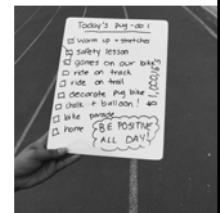 Today's pug-do!
warm up + stretches
safety lesson
games on our bike
ride on track
ride on trail
decorate pug bike
chalk + balloon!
bike parade
home
BE POSITIVE
ALL DAY!